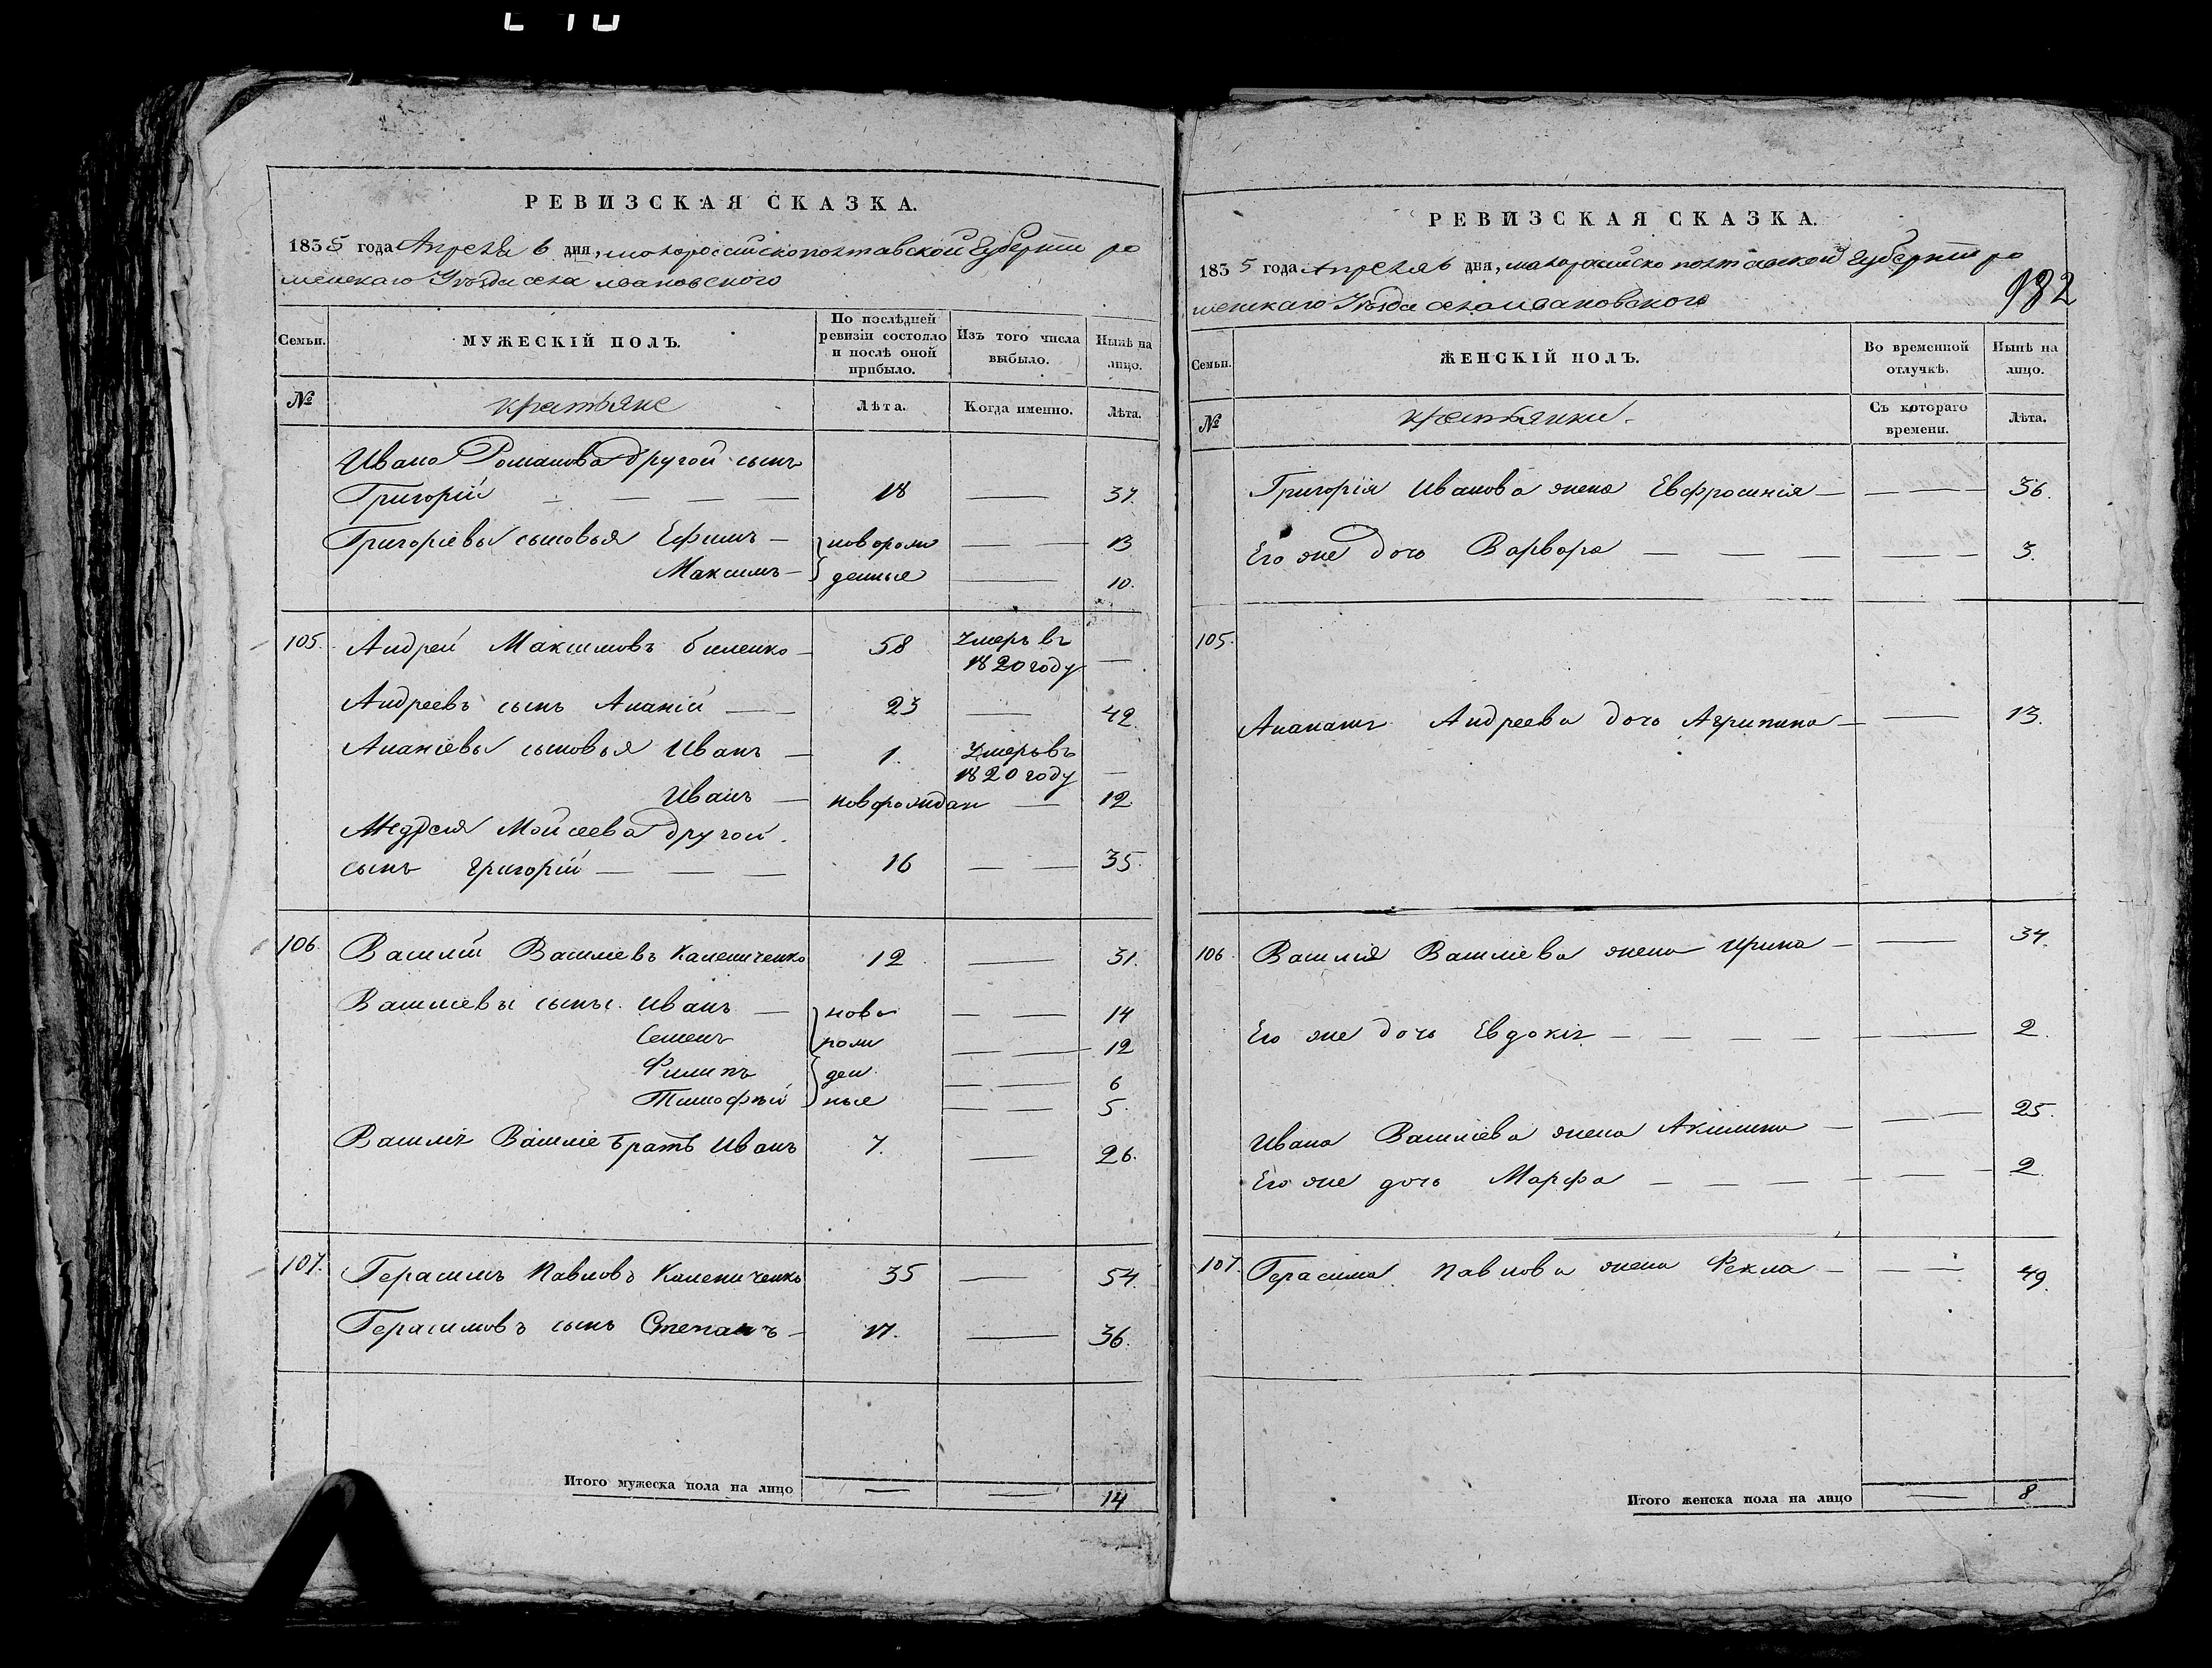 РЕВИЗСКАЯ СКАЗКА.
1835 года Апреля 6 дня, малороссийскополтавской Губернии ро
менскаго Уѣзда села ивановского
Семьи.
МУЖЕСКІЙ ПОЛЪ.
По послѣдней ревизіи состояло и послѣ оной прибыло.
Изъ того числа выбыло.
Нынѣ на лицо.
№ крестьяне Лѣта. Когда именно. Лѣта.
Ивана Романова другой сынъ
Григорій — — — — 18 — 37.
Григоріевы сыновья Ефимъ — новорож — 13
Максимъ — денные — 10.
105. Андрей Максимовъ биленко — 58 Умеръ въ 1820 году —
Андреевъ сынъ Ананій — 23 — 42.
Ананіевы сыновья Иванъ — 1. Умеръ въ 1820 году —
Иванъ — новорожден — 12.
Моисеева другой
сынъ григорій — — — 16 — — 35.
106. Василій Василіевъ Калениченко 12 — 31.
Василіевы сыны. Иванъ — ново — — 14
Семенъ рож — — 12
Филипъ ден — — 6
Тимофѣй ные — — 5.
Василія Василіе братъ Иванъ 7. — 26.
107. Герасимъ Павловъ Калениченко 35 — 54.
Герасимовъ сынъ Степанъ — 17. — 36.
Итого мужеска пола на лицо — — 14
РЕВИЗСКАЯ СКАЗКА.
1835 года Апреля 6 дня, малоросийско полтавской Губернии ро
менскаго Уѣзда села ивановского
982
Семьи.
ЖЕНСКІЙ ПОЛЪ.
Во временной отлучкѣ.
Нынѣ на лицо.
№ крестьянки. Съ котораго времени. Лѣта.
Григорія Иванова жена Евфросинія — — — 36.
Его же дочь Варвара — — — — — 3.
105.
Андреева дочь Агрипина — — 13.
106. Василия Василіева жена Ирина — — 34.
Его же дочь Евдокія — — — — — 2.
Ивана Василіева жена Акилина — — 25.
Его же дочь Марфа — — — — — 2.
107. Герасима Павлова жена Фекла — — — 49.
Итого женска пола на лицо — 8